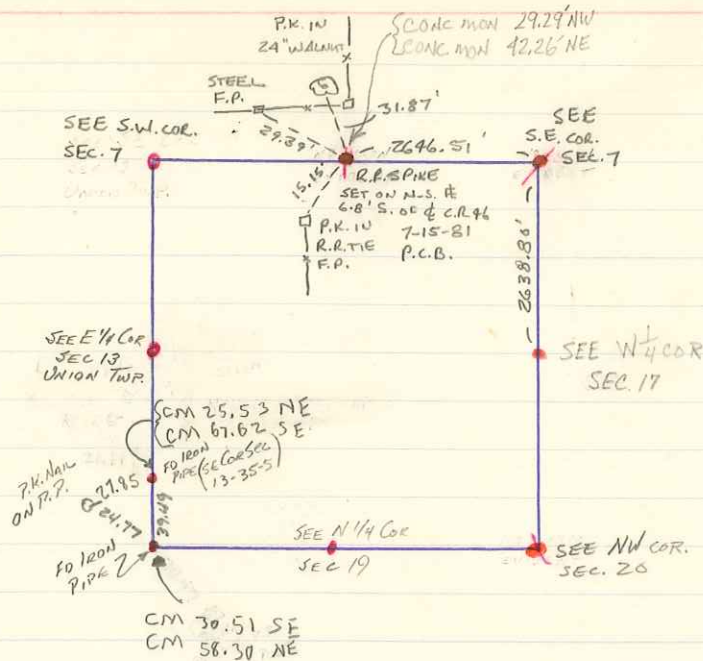 P.K. IN
24" WALNUT
CONC MON 29.29' NW
CONC. MON 42.26' NE
STEEL
F.P.
6
31.87'
29.39'
SEE S.W. COR.
SEC. 7
2646.51'
SEE
S.E. COR.
SEC. 7
15.15'
R.R. SPIKE
SET ON N.S. ℄
6.8' S. OF ℄ C.R. 46
7-15-81
P.C.B.
P.K. IN
R.R. TIE
F.P.
2638.80'
SEE E 1/4 COR
SEC 13
UNION TWP.
SEE W 1/4 COR
SEC. 17
CM 25.53 NE
CM 67.62 SE
FD IRON
PIPE (SE COR SEC
13-35-5)
P.K. NAIL
ON P.P.
27.85
24.77
39.49
FD IRON
PIPE
SEE N 1/4 COR
SEC 19
SEE NW COR.
SEC. 20
CM 30.51 SE
CM 58.30 NE